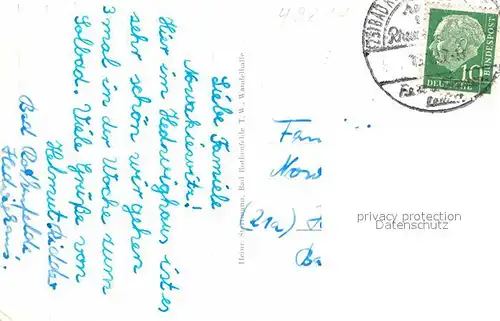 Liebe Familie
Nowakiewitz!
Hier im Hedwighaus ist es
sehr schön wir gehen
3 mal in der Woche zum
Solbad. Viele Grüße von
Helmut
Bad Rothenfelde
Hedwighaus.
Bad Rothenfelde T. W., Wandelhalle
Fam
Now
(21a)
Ba
(23) BAD
10
DEUTSCHE
BUNDESPOST
privacy protection
Datenschutz